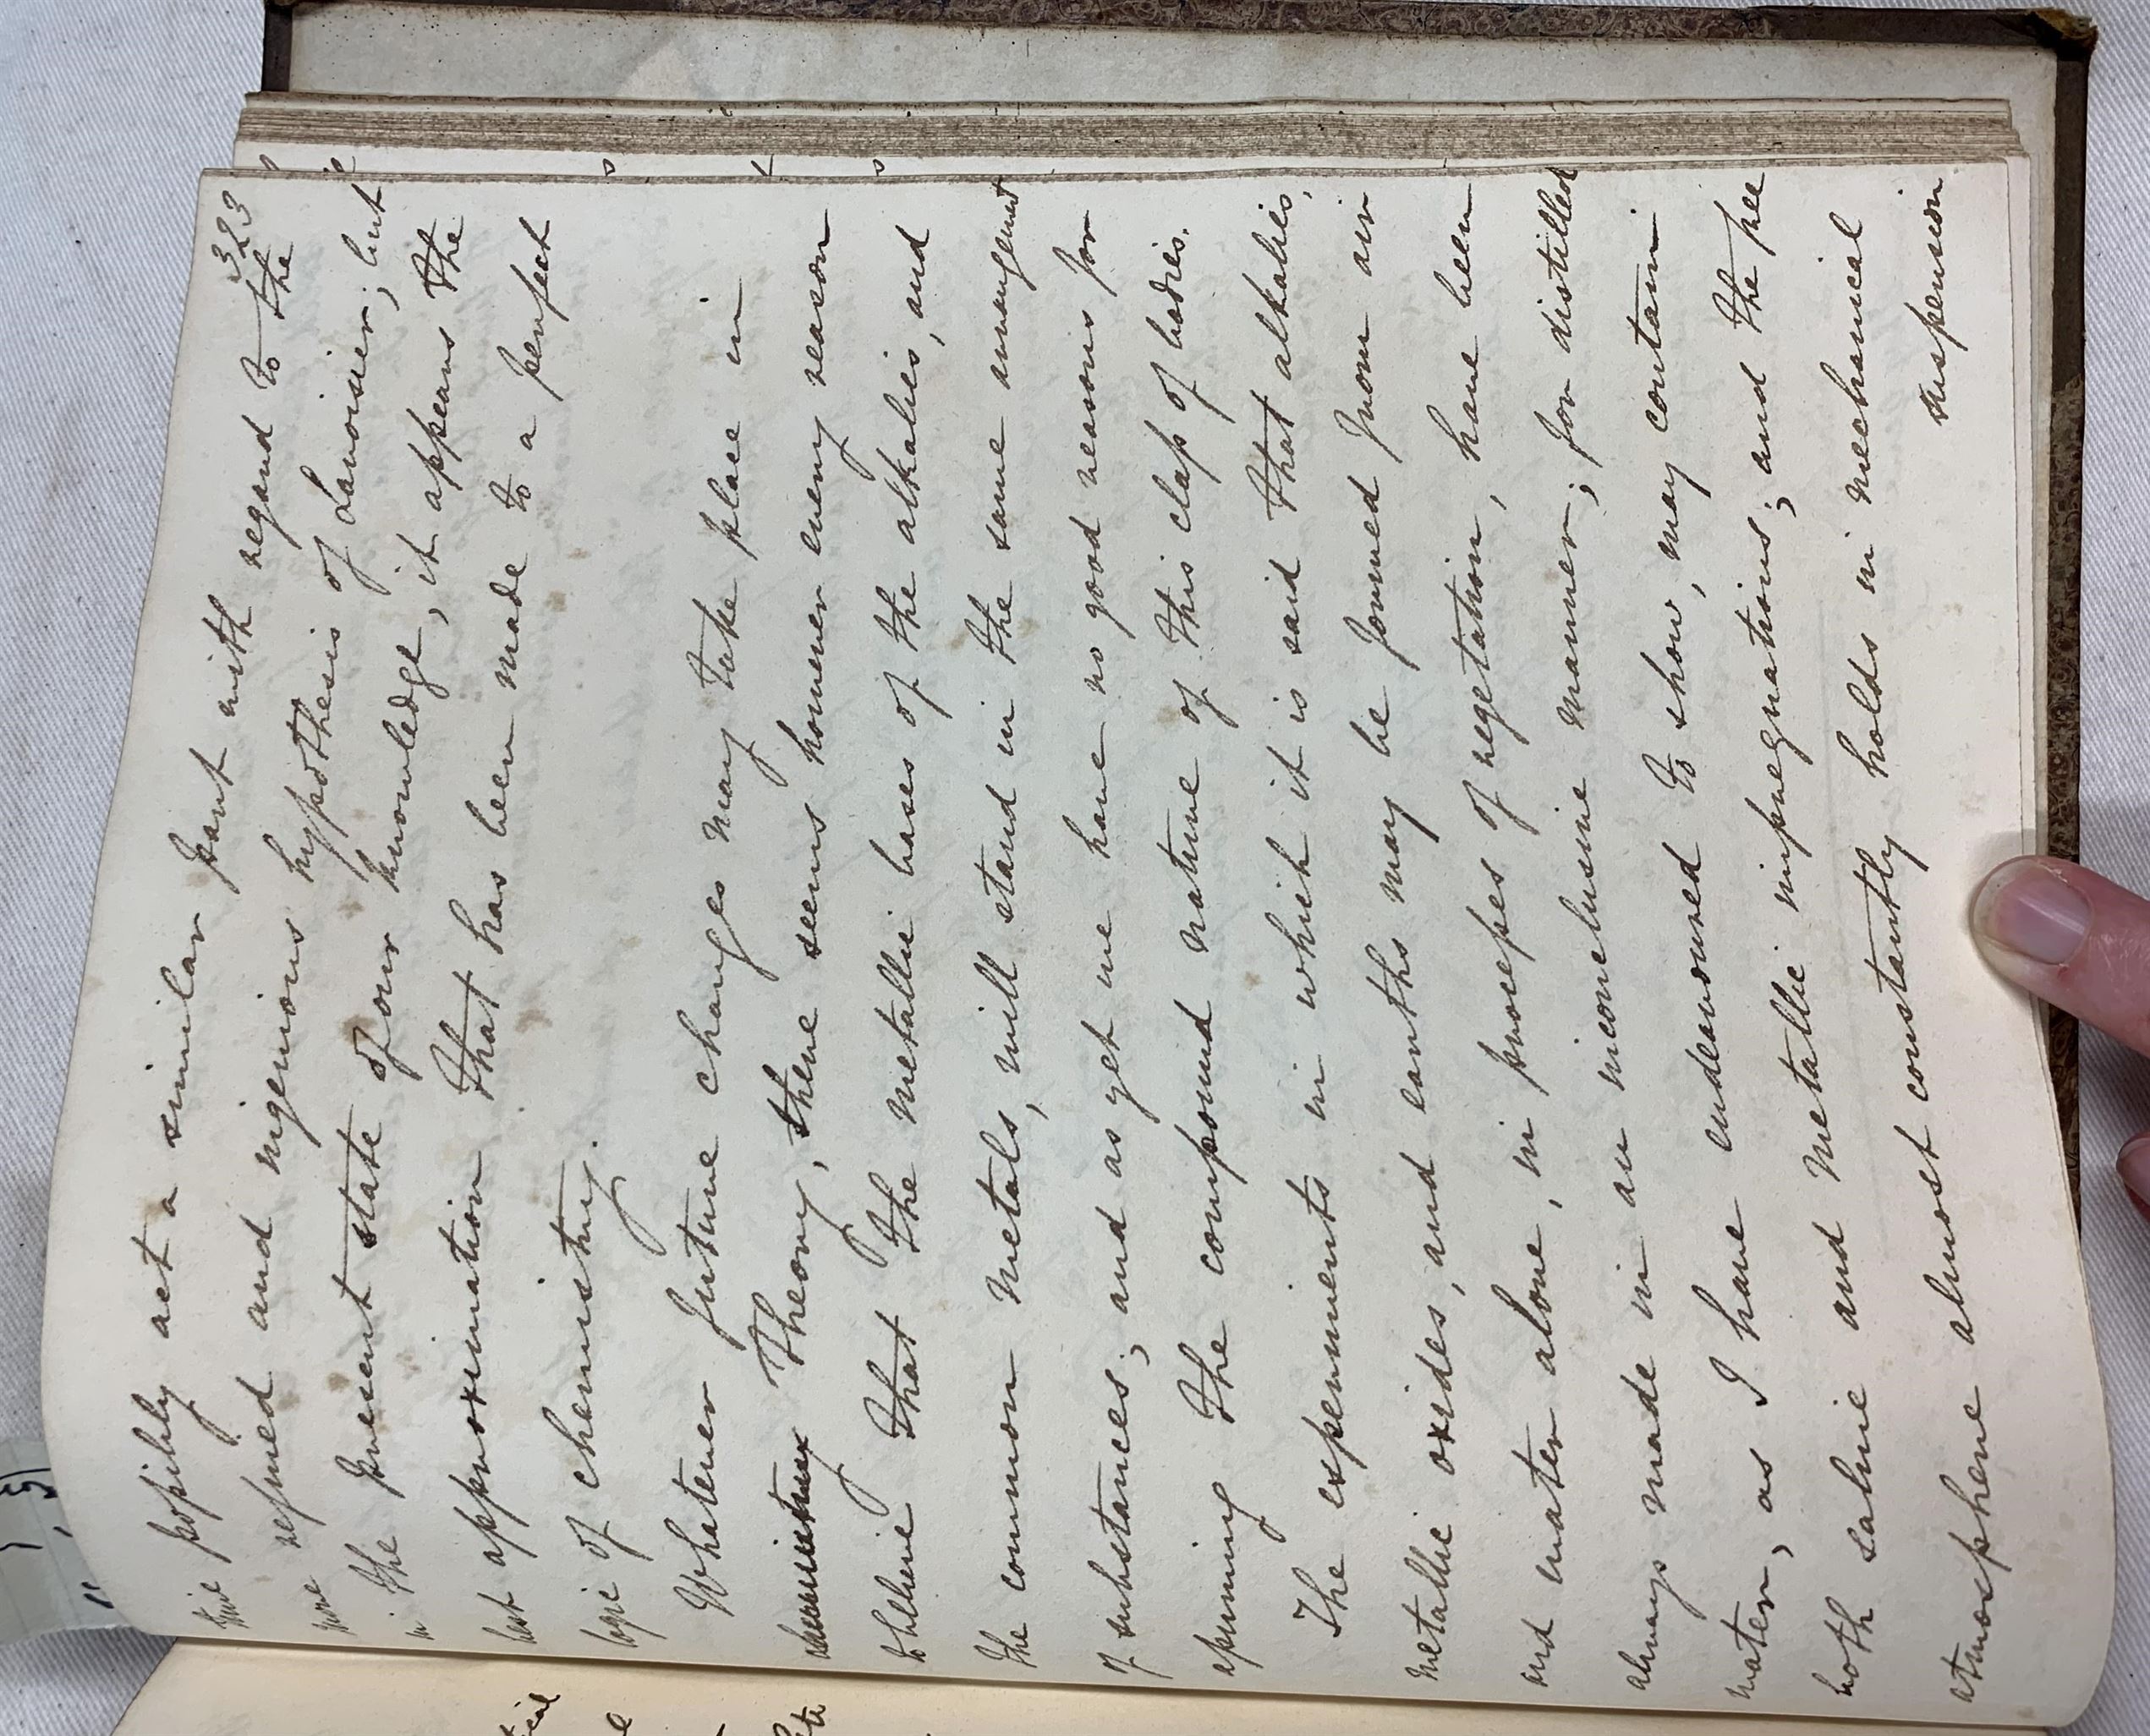 323
time possibly act a similar part with regard to the
more refined and ingenious hypothesis of Lavoisier; but
in the present state of our knowledge, it appears the
best approximation that has been made to a perfect
logic of chemistry.
Whatever future changes may take place in
Theory, there seems however every reason
to believe that the metallic bases of the alkalies, and
the common metals, will stand in the same arrangement
of substances; and as yet we have no good reasons for
assuming the compound nature of this class of bodies.
The experiments in which it is said that alkalies,
metallic oxides, and earths may be formed from air
and water alone, in processes of vegetation, have been
always made in an inconclusive manner; for distilled
water, as I have endeavoured to show, may contain
both saline and metallic impregnations; and the free
atmosphere almost constantly holds in mechanical
suspension